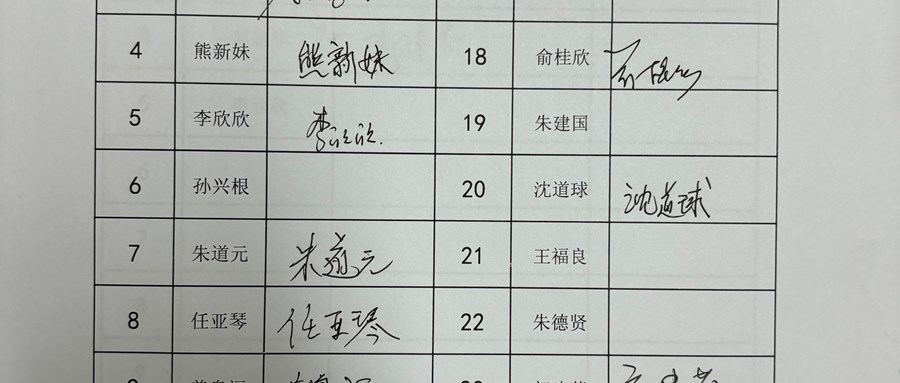 4 熊新妹 熊新妹 18 俞桂欣
5 李欣欣 李欣欣. 19 朱建国
6 孙兴根 20 沈道球 沈道球
7 朱道元 朱道元 21 王福良
8 任亚琴 任亚琴 22 朱德贤